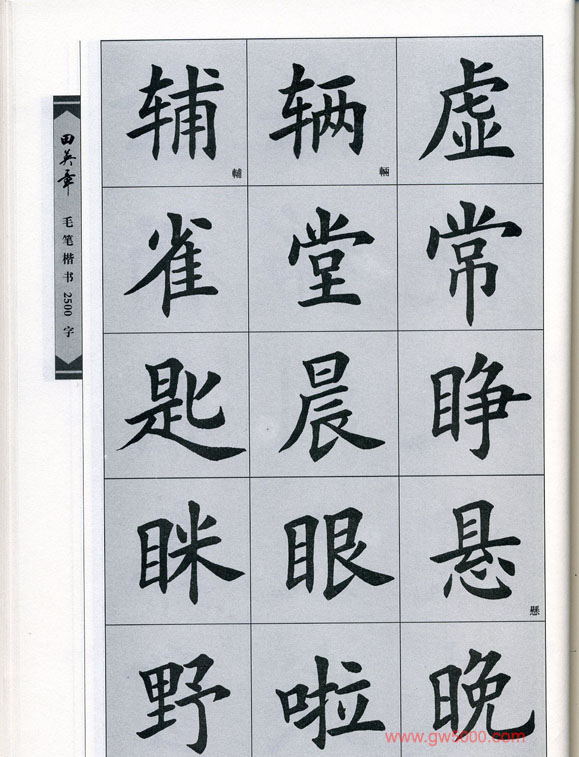 田英章 毛笔楷书2500字
辅 輔 辆 輛 虚
雀 堂 常
匙 晨 睁
眯 眼 悬 懸
野 啦 晚
www.gw5000.com